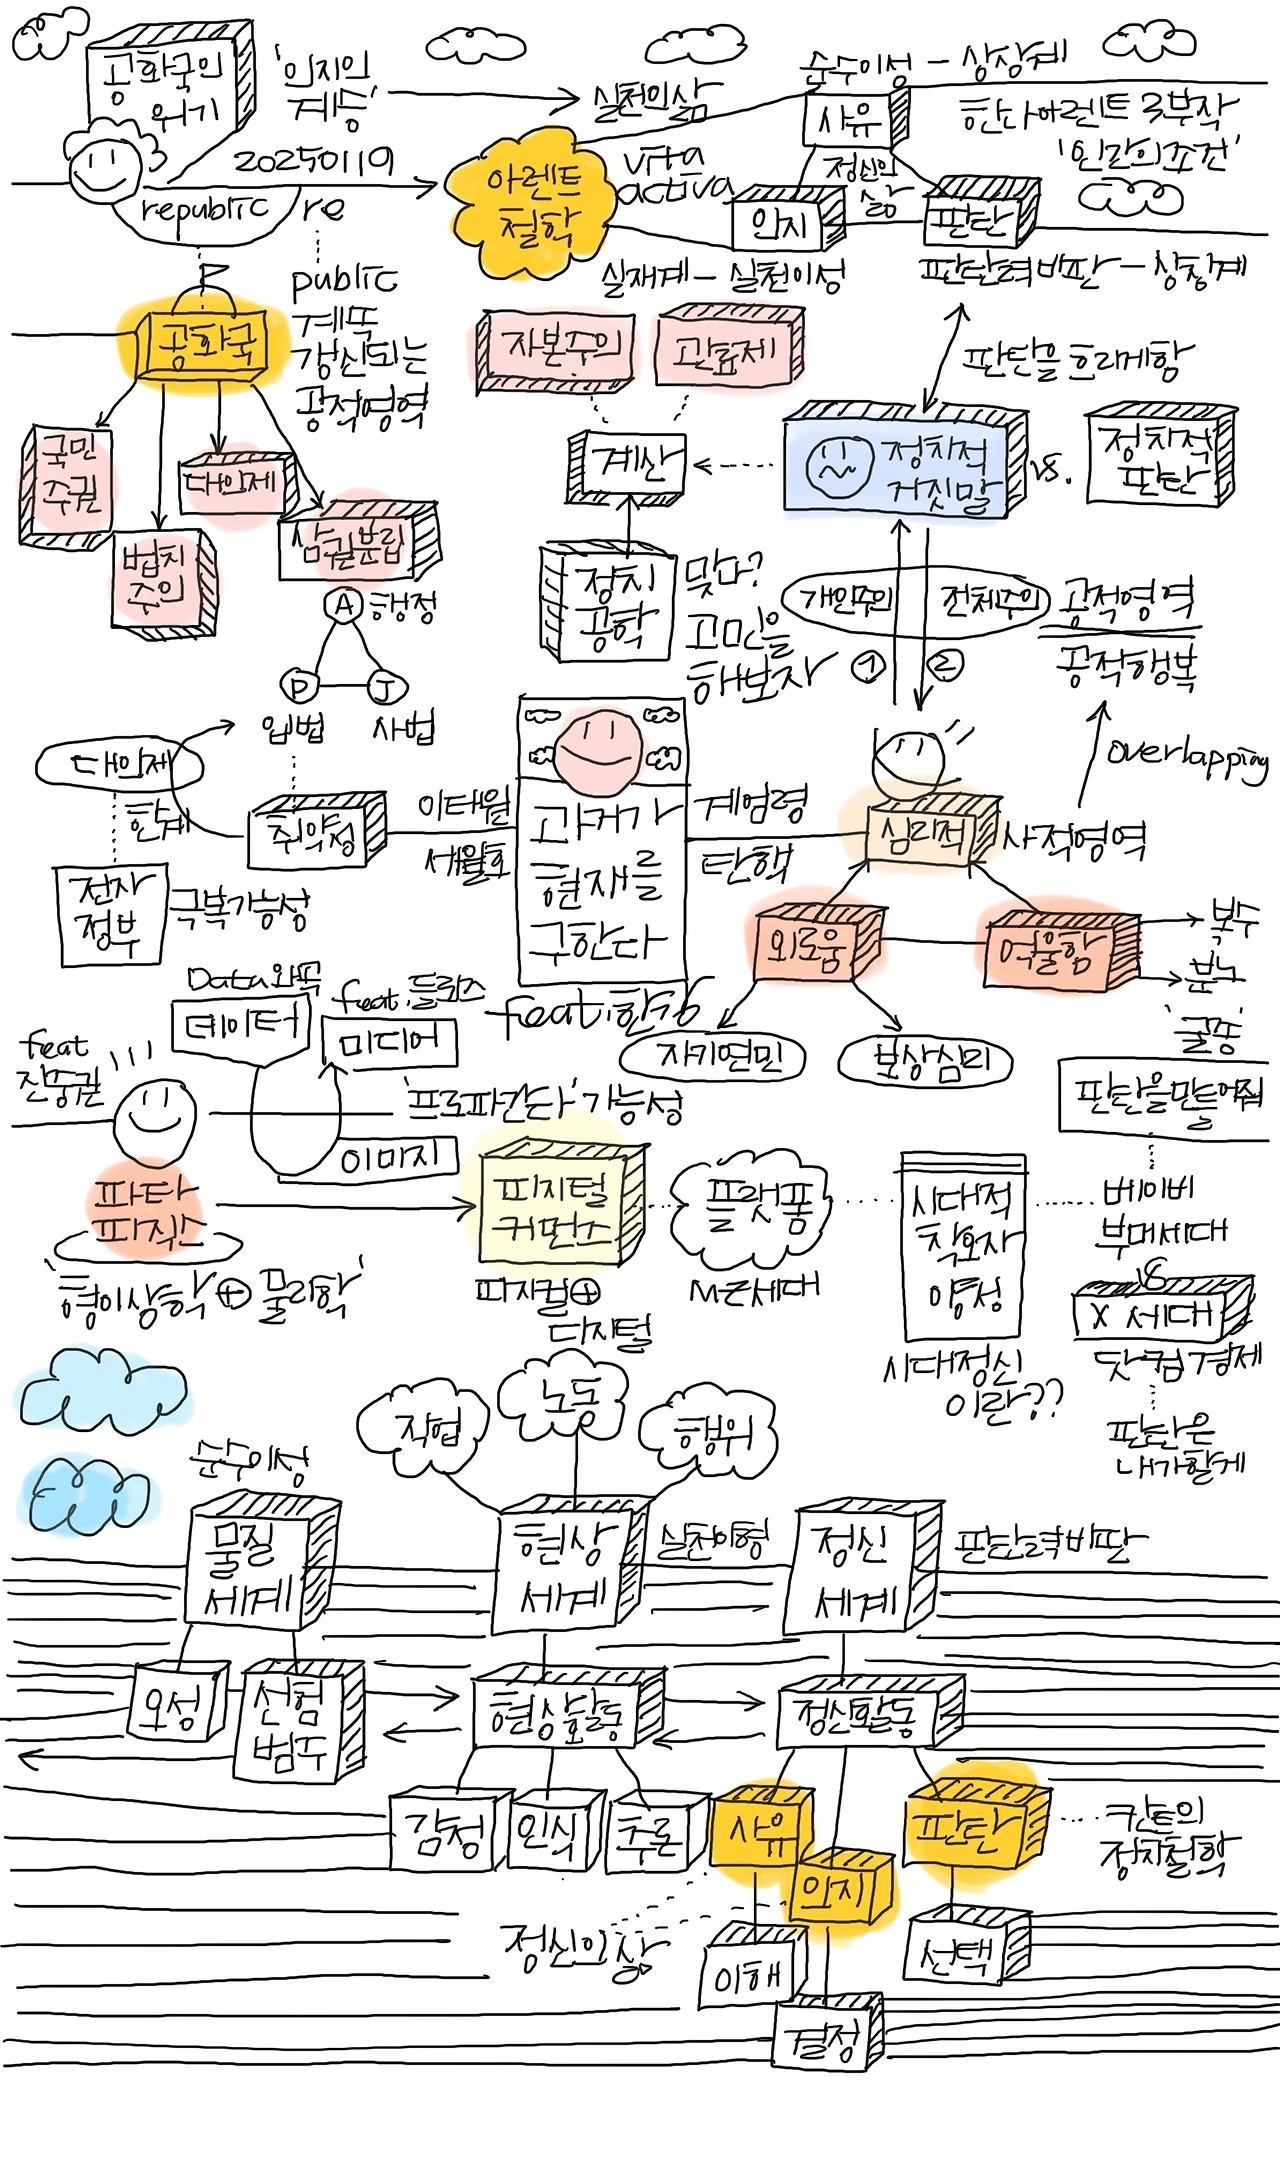 공화국의
위기
'의지의
계승'
20250119
republic
re
public
계속
갱신되는
공적영역
실천의삶
아렌트
철학
vita
activa
순수이성 - 상상계
사유
정신의
삶
의지
판단
한나아렌트 3부작
'인간의조건'
실재계 - 실천이성
판단력비판 - 상징계
판단을 흐리게함
공화국
국민
주권
법치
주의
대의제
삼권분립
A 행정
P
J
입법
사법
자본주의
관료제
계산
정치
공학
맞나?
고민을
해보자
정치적
거짓말
vs.
정치적
판단
개인주의
전체주의
①
②
공적영역
공적행복
overlapping
대의제
한계
취약성
전자
정부
극복가능성
이태원
세월호
과거가
현재를
구한다
feat.한강
계엄령
탄핵
심리적
사적영역
외로움
억울함
복수
분노
자기연민
보상심리
'굴종'
판단을만들어줌
Data왜곡
데이터
feat.들뢰즈
미디어
이미지
'프로파간다'가능성
feat
진중권
파타
피직스
'형이상학 ⊕ 물리학'
피지털
커먼즈
피지컬⊕
디지털
플랫폼
MZ세대
시대적
착오자
양성
시대정신
이란??
베이비
부머세대
vs
X 세대
닷컴경제
판단은
내가할게
직업
노동
행위
순수이성
물질
세계
현상
세계
실천이형
정신
세계
판단력비판
오성
선험
범주
현상활동
정신활동
감정
인식
추론
사유
의지
판단
칸트의
정치철학
정신의삶
이해
결정
선택